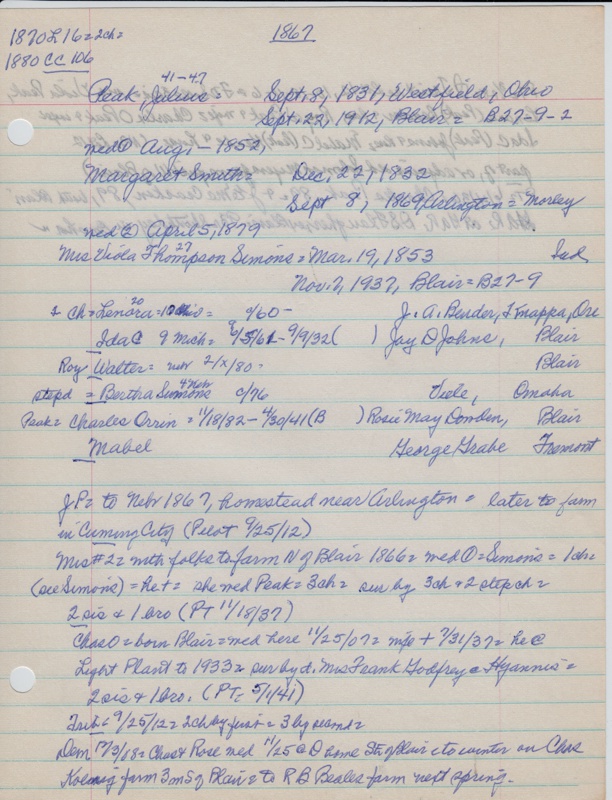 1870 L 16 = 2ch =
1867
1880 CC 106
41-47
Peak, Julius = Sept. 8, 1831, Westfield, Ohio
Sept. 22, 1912, Blair = B27-9-2
med ① Aug, - 1852,
Margaret Smith = Dec, 22, 1832
Sept 8, 1869, Arlington = Morley
med ② April 5, 1879
27
Mrs Viola Thompson Simons = Mar. 19, 1853 Ind
Nov. 7, 1937, Blair = B27-9
ch = Lenora = 10 Ohio = 9/60 - J. A. Bender, Knappa, Ore
Ida C 9 Mich = 9/5/61 - 9/9/32 ( ) Jay D Johns, Blair
Roy Walter = nebr 2/x/80 - Blair
stepd = Bertha Simmons 4 Nebr c/76 Viele, Omaha
Peak = Charles Orrin = 11/18/82 - 4/30/41 (B ) Rosie May Dowden, Blair
Mabel George Grabe Fremont
J P = to Nebr 1867, homestead near Arlington = later to farm
in Cuming City (Pilot 9/25/12)
Mrs #2 = with folks to farm N of Blair 1866 = med ① = Simons = 1ch =
(see Simons) = he + = she med Peak = 3ch = sur by 3ch & 2 step ch =
2 sis & 1 bro (PT 11/18/37)
Chas O = born Blair = med here 11/25/07 = wife + 7/31/37 = he @
Light Plant to 1933 = sur by d. Mrs Frank Godfrey @ Hyannis =
2 sis & 1 bro. (PT 5/1/41)
Trib = 9/25/12 = 2ch by first = 3 by second =
Dem = Chas & Rose med 11/25 @ D home SE of Blair = to winter on Chas
farm 3 m S of Blair = to R B Beales farm next spring.